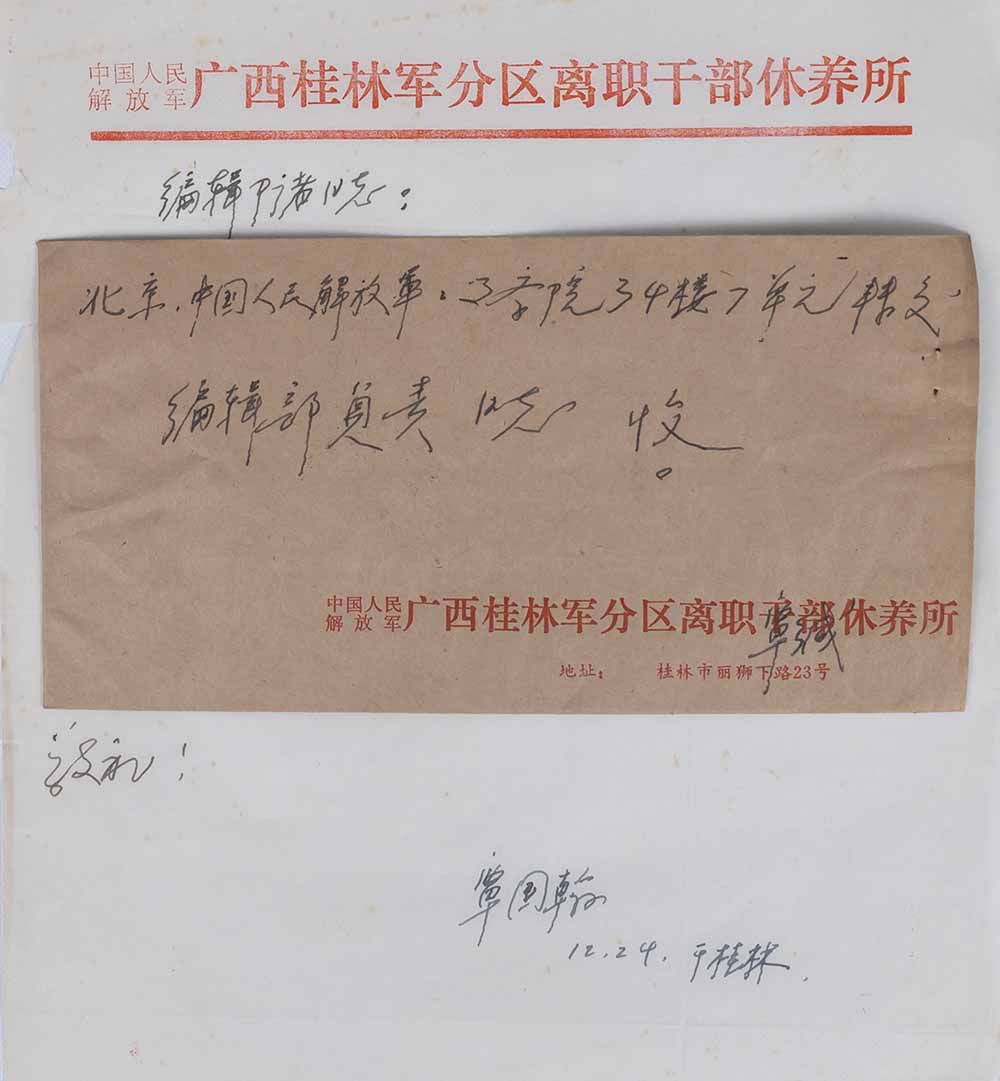 中国人民
解放军 广西桂林军分区离职干部休养所
编辑部诸同志：
北京.中国人民解放军: 学院34楼7单元 转交
编辑部负责 同志 收
中国人民
解放军 广西桂林军分区离职干部休养所
覃
地址： 桂林市丽狮下路23号
敬礼！
覃国翰
12.24. 于桂林.